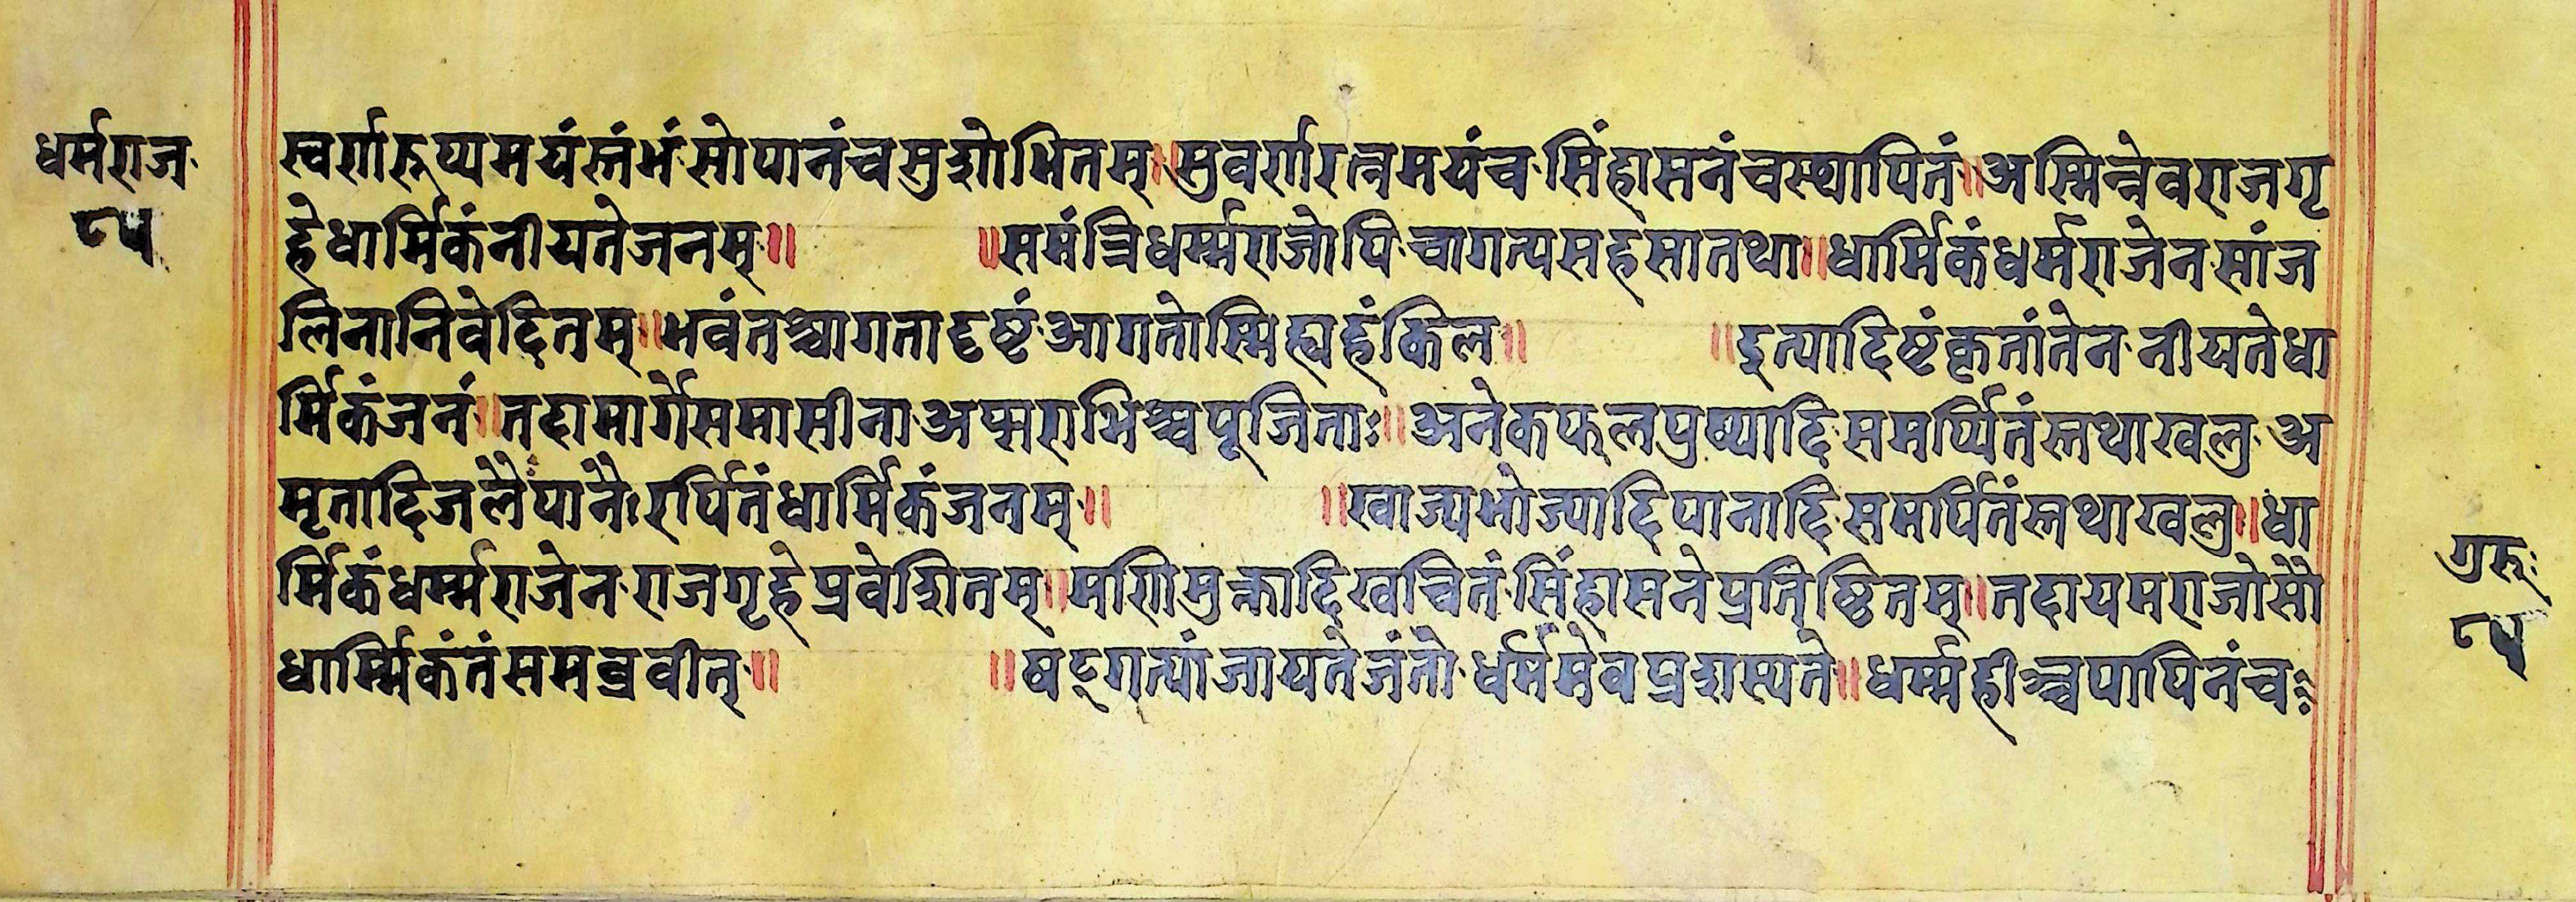 धर्मराज
८५
स्वर्णरुप्यमयंस्तंभंसोपानंचसुशोभितम्॥सुवर्णरत्नमयंचसिंहासनंचस्थापितं॥अस्मिन्नेवराजगृ
हेधार्मिकंनीयतेजनम्॥ ॥समंत्रिधर्म्मराजोपिचागत्यसहसातथा॥धार्मिकंधर्मराजेनसांज
लिनानिवेदितम्॥भवंतश्चागतादृष्टंआगतोस्मिह्यहंकिल॥ ॥इत्यादिष्टंकृतांतेननीयतेधा
र्मिकंजनं॥तदामार्गेसमासीनाअप्सराभिश्चपूजिताः॥अनेकफलपुष्पादिसमर्प्पितंस्तथाखलुअ
मृतादिजलैःपानैःरर्पितंधार्मिकंजनम्॥ ॥खाज्यभोज्यादिपानादिसमर्पितंस्तथाखलु॥धा
र्मिकंधर्म्मराजेनराजगृहेप्रवेशितम्॥मणिमुक्तादिखचितंसिंहासनेप्रतिष्ठितम्॥तदायमराजोसौ
धार्म्मिकंतंसमब्रवीत्॥ ॥षद्गत्यांजायतेजंतोधर्ममेवप्रशस्यते॥धर्म्महीश्चपापिनंचः
गुरुः
८५